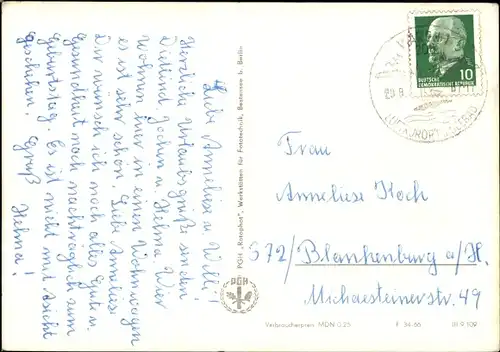 Liebe Anneliese u. Willi!
Herzliche Urlaubsgrüße senden
Dietlind, Jochen u. Helma. Wir
wohnen hier in einem Wohnwagen
es ist sehr schön. Liebe Anneliese
Dir wünsch ich noch alles Gute u.
Gesundheit noch nachträglich zum
Geburtstag. Es ist nicht mit Absicht
geschehen. Gruß Helma!
PGH „Rotophot", Werkstätten für Fototechnik, Bestensee b. Berlin
PGH
DEUTSCHE
DEMOKRATISCHE REPUBLIK
10
20.8.
LUFTKURORT
Frau
Anneliese Koch
372/ Blankenburg a/H.
Michaesteinerstr. 49
Verbraucherpreis MDN 0,25
F 34-66
III 9 109